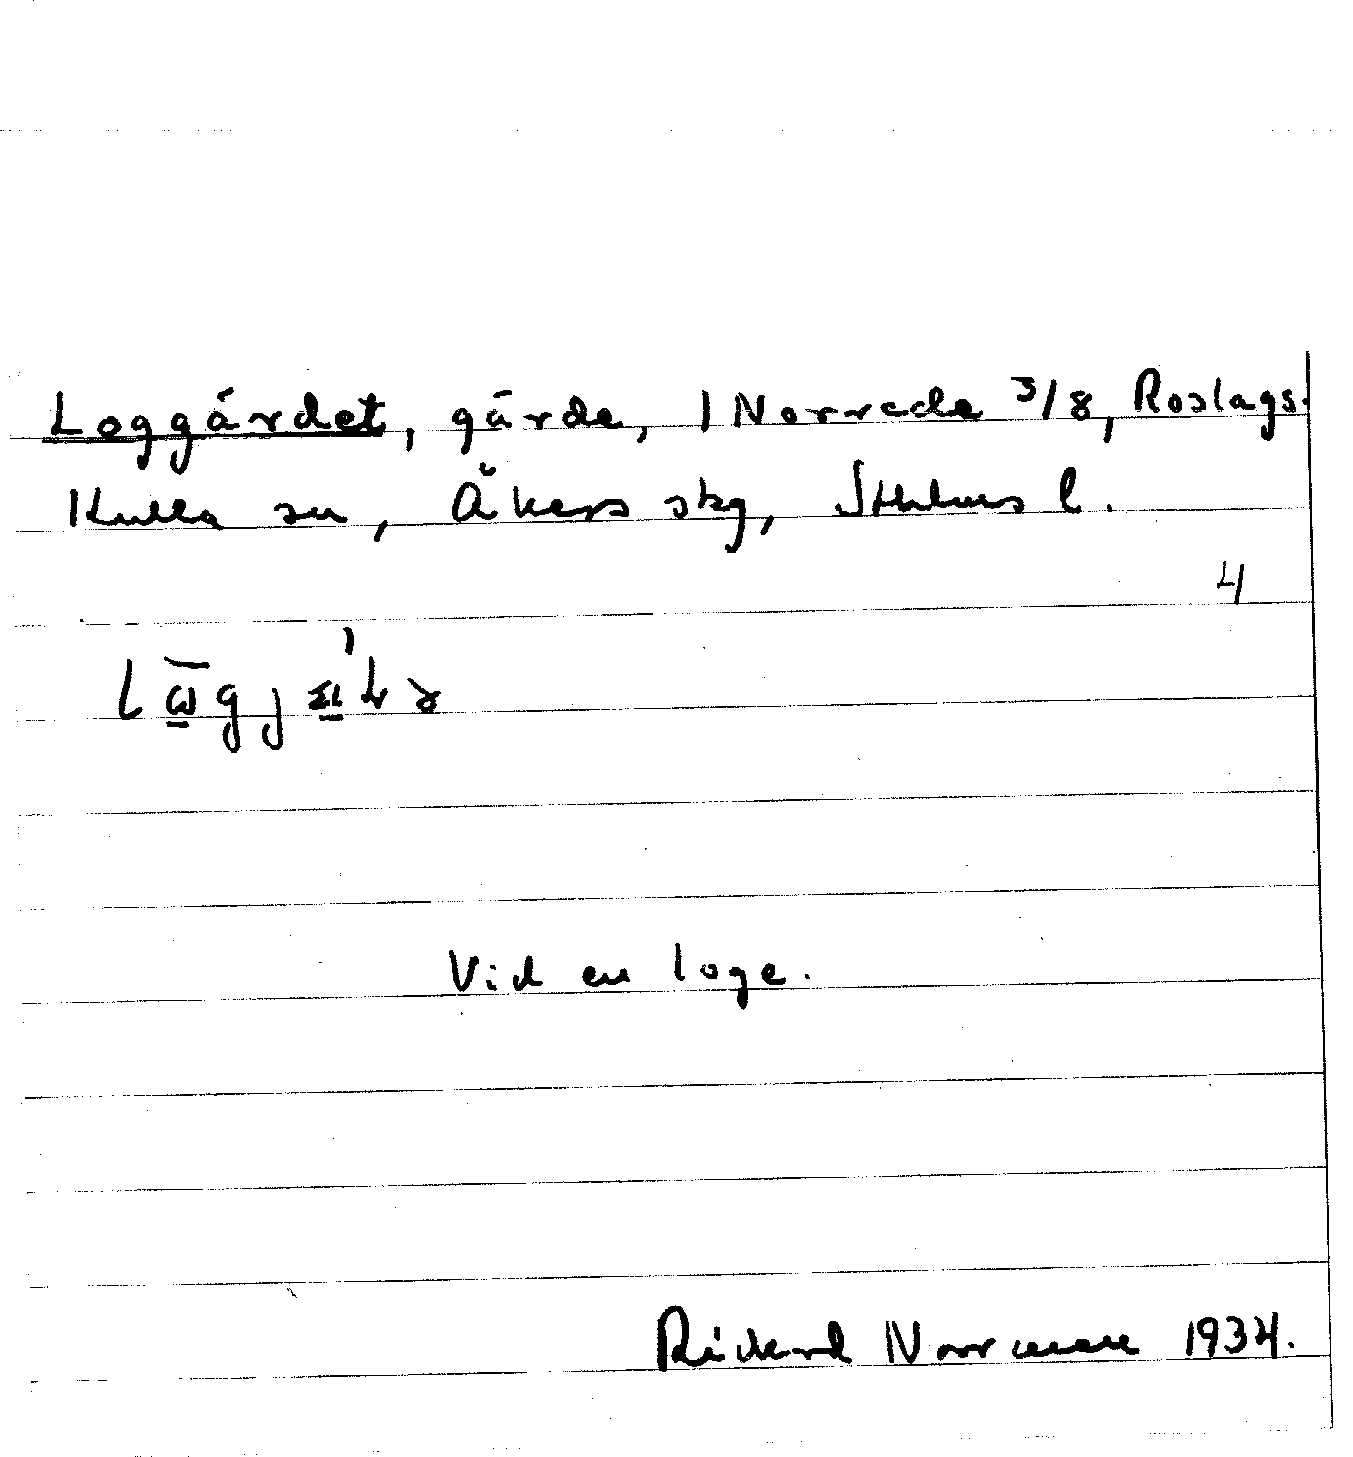 Loggärdet, gärde, 1 Norreda 3/8, Roslags-
Kulla sn, Åkers skg, Sthlms l.
4
Vid en loge.
Rickard Norrman 1934.